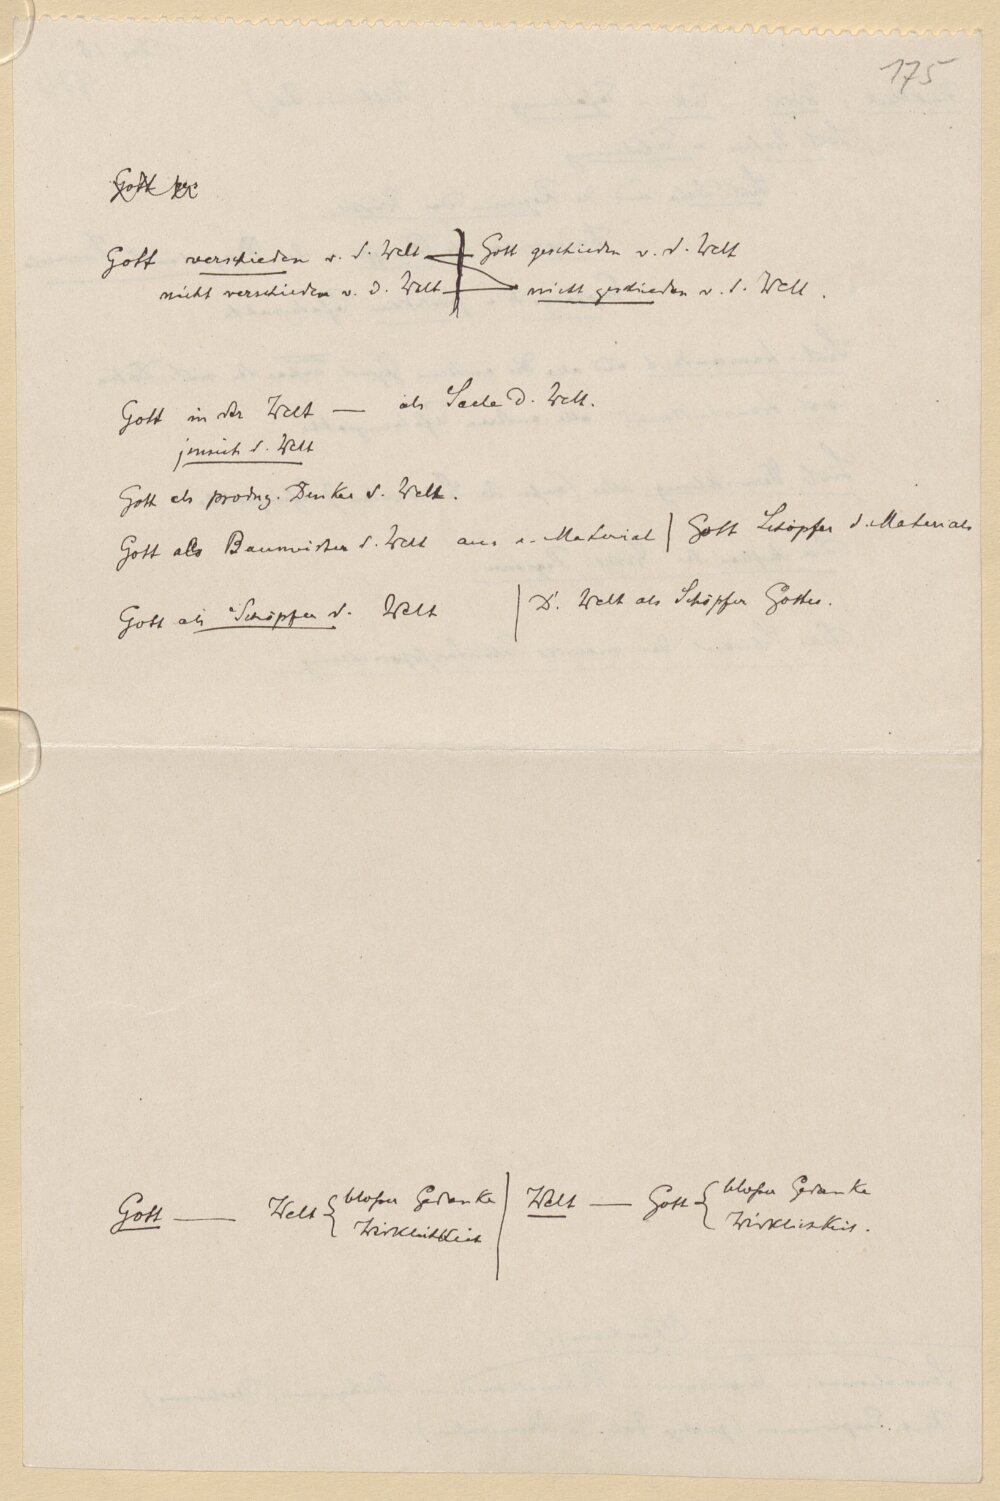 175
Gott
Gott verschieden v. d. Welt Gott geschieden v. d. Welt
nicht verschieden v. d. Welt nicht geschieden v. d. Welt.
Gott in der Welt — als Seele d. Welt.
jenseits d. Welt
Gott als Denker d. Welt.
Gott als Baumeister d. Welt aus e. Material | Gott Schöpfer d. Materials
Gott als Schöpfer d. Welt | D. Welt als Schöpfer Gottes.
Gott — Welt { bloßer Gedanke | Welt — Gott { bloßer Gedanke
Wirklichkeit Wirklichkeit.